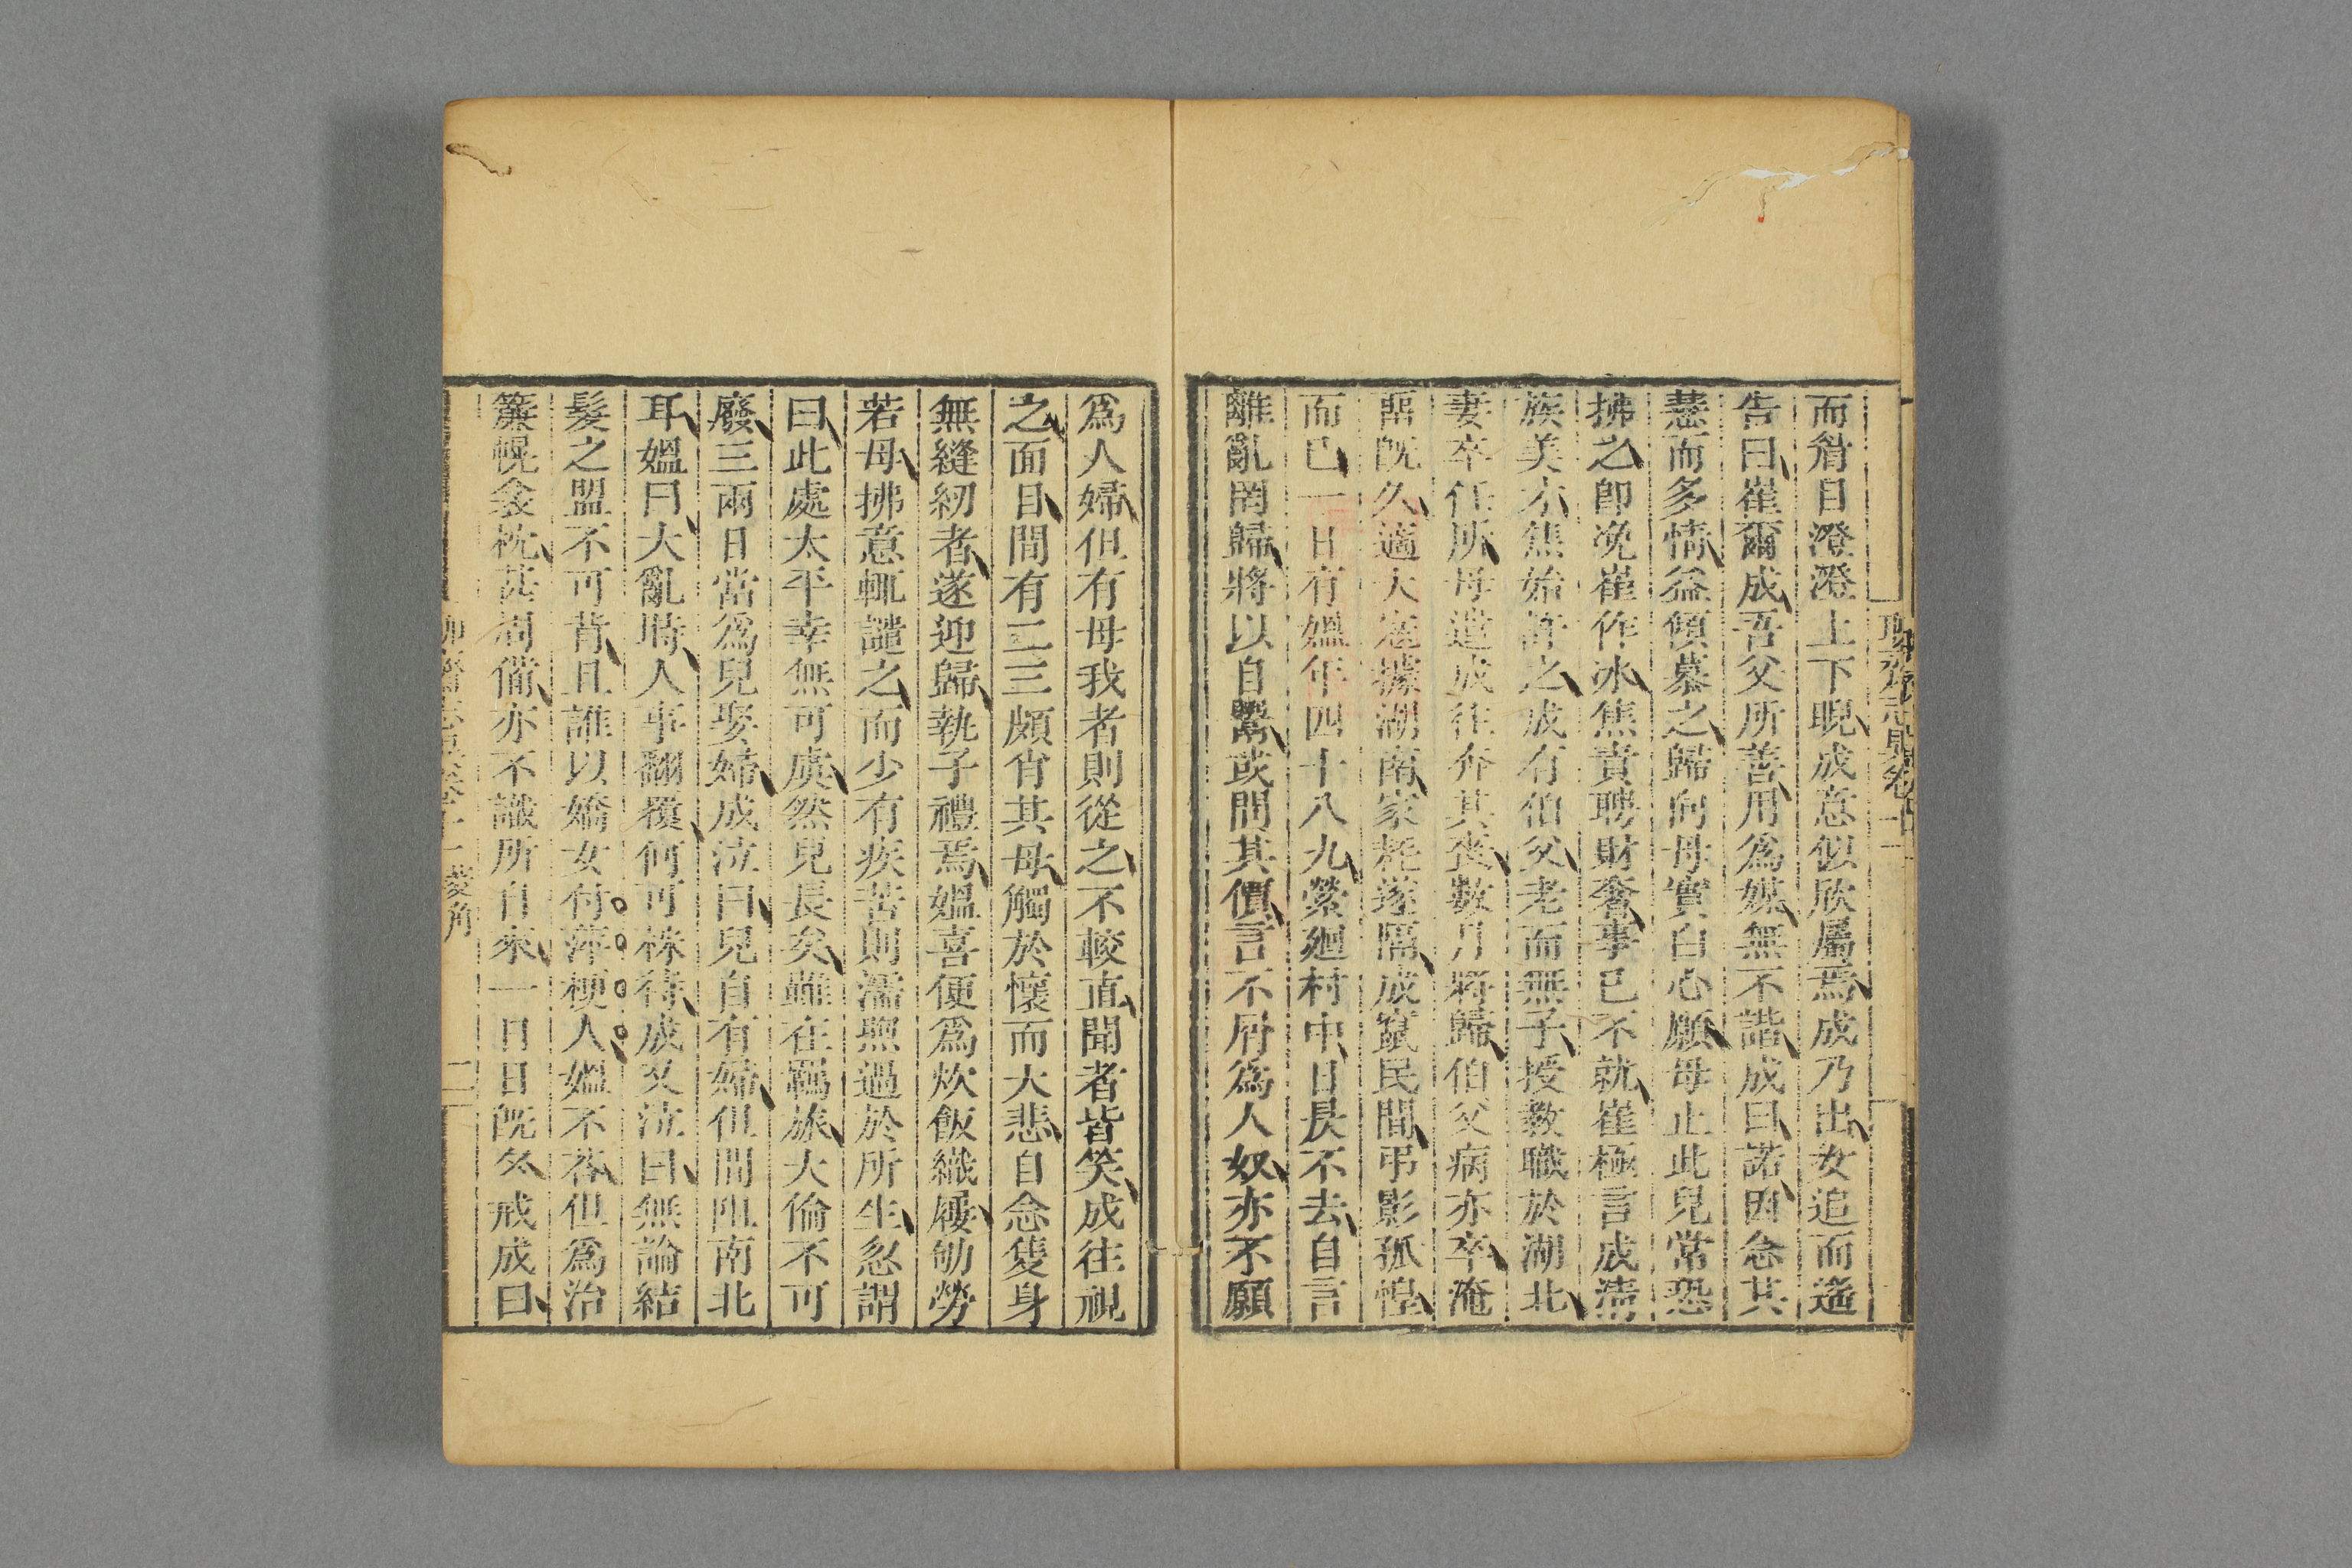 而眥目澄澄上下睨成意似欣屬焉成乃出女追而遙
告曰崔爾成吾父所善用爲媒無不諧成曰諾因念其
慧而多情益傾慕之歸向母實白心願母止此兒常恐
拂之卽浼崔作冰焦責聘財奢事已不就崔極言成淸
族美才焦始許之成有伯父老而無子授敎職於湖北
妻卒任所母遣成往奔其喪數月將歸伯父病亦卒淹
畱旣久適大寇據湖南家耗遂隔成竄民間弔影孤惶
而已一日有媼年四十八九縈廻村中日昃不去自言
離亂罔歸將以自鬻或問其價言不屑爲人奴亦不願
爲人婦但有母我者則從之不較直聞者皆笑成往視
之面目間有二三頗肖其母觸於懷而大悲自念隻身
無縫紉者遂迎歸執子禮焉媼喜便爲炊飯織屨劬勞
若母拂意輒譴之而少有疾苦則濡煦過於所生忽謂
曰此處太平幸無可虞然兒長矣雖在羈旅大倫不可
廢三兩日當爲兒娶婦成泣曰兒自有婦但間阻南北
耳媼曰大亂時人事翻覆何可株待成又泣曰無論結
髮之盟不可背且誰以嬌女付萍梗人媼不荅但爲治
簾幌衾枕甚周備亦不識所自來一日日旣夕戒成曰
聊齋志異卷十一 菱角
二
聊齋志異卷十一